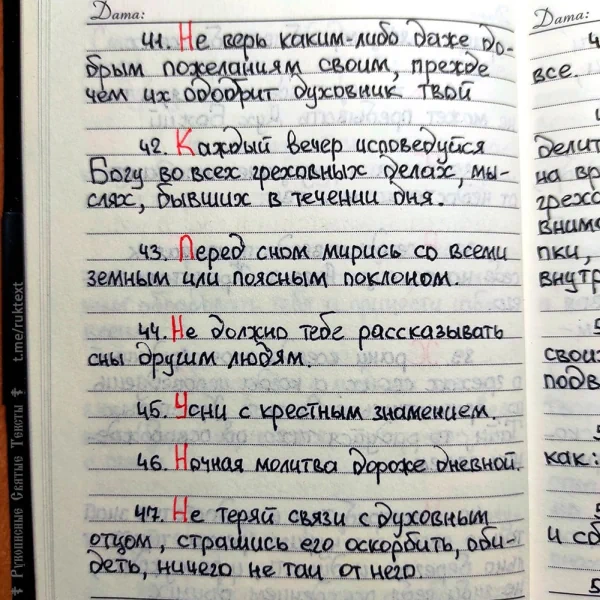 Дата:
41. Не верь каким-либо даже до-
брым пожеланиям своим, прежде
чем их одобрит духовник твой
42. Каждый вечер исповедуйся
Богу во всех греховных делах, мы-
слях, бывших в течении дня.
43. Перед сном мирись со всеми
земным или поясным поклоном.
44. Не должно тебе рассказывать
сны другим людям.
45. Усни с крестным знамением.
46. Ночная молитва дороже дневной.
47. Не теряй связи с духовным
отцом, страшись его оскорбить, оби-
деть, ничего не таи от него.
Дата:
все.
на
как:
и
Рукописные Святые Тексты t.me/ruktext